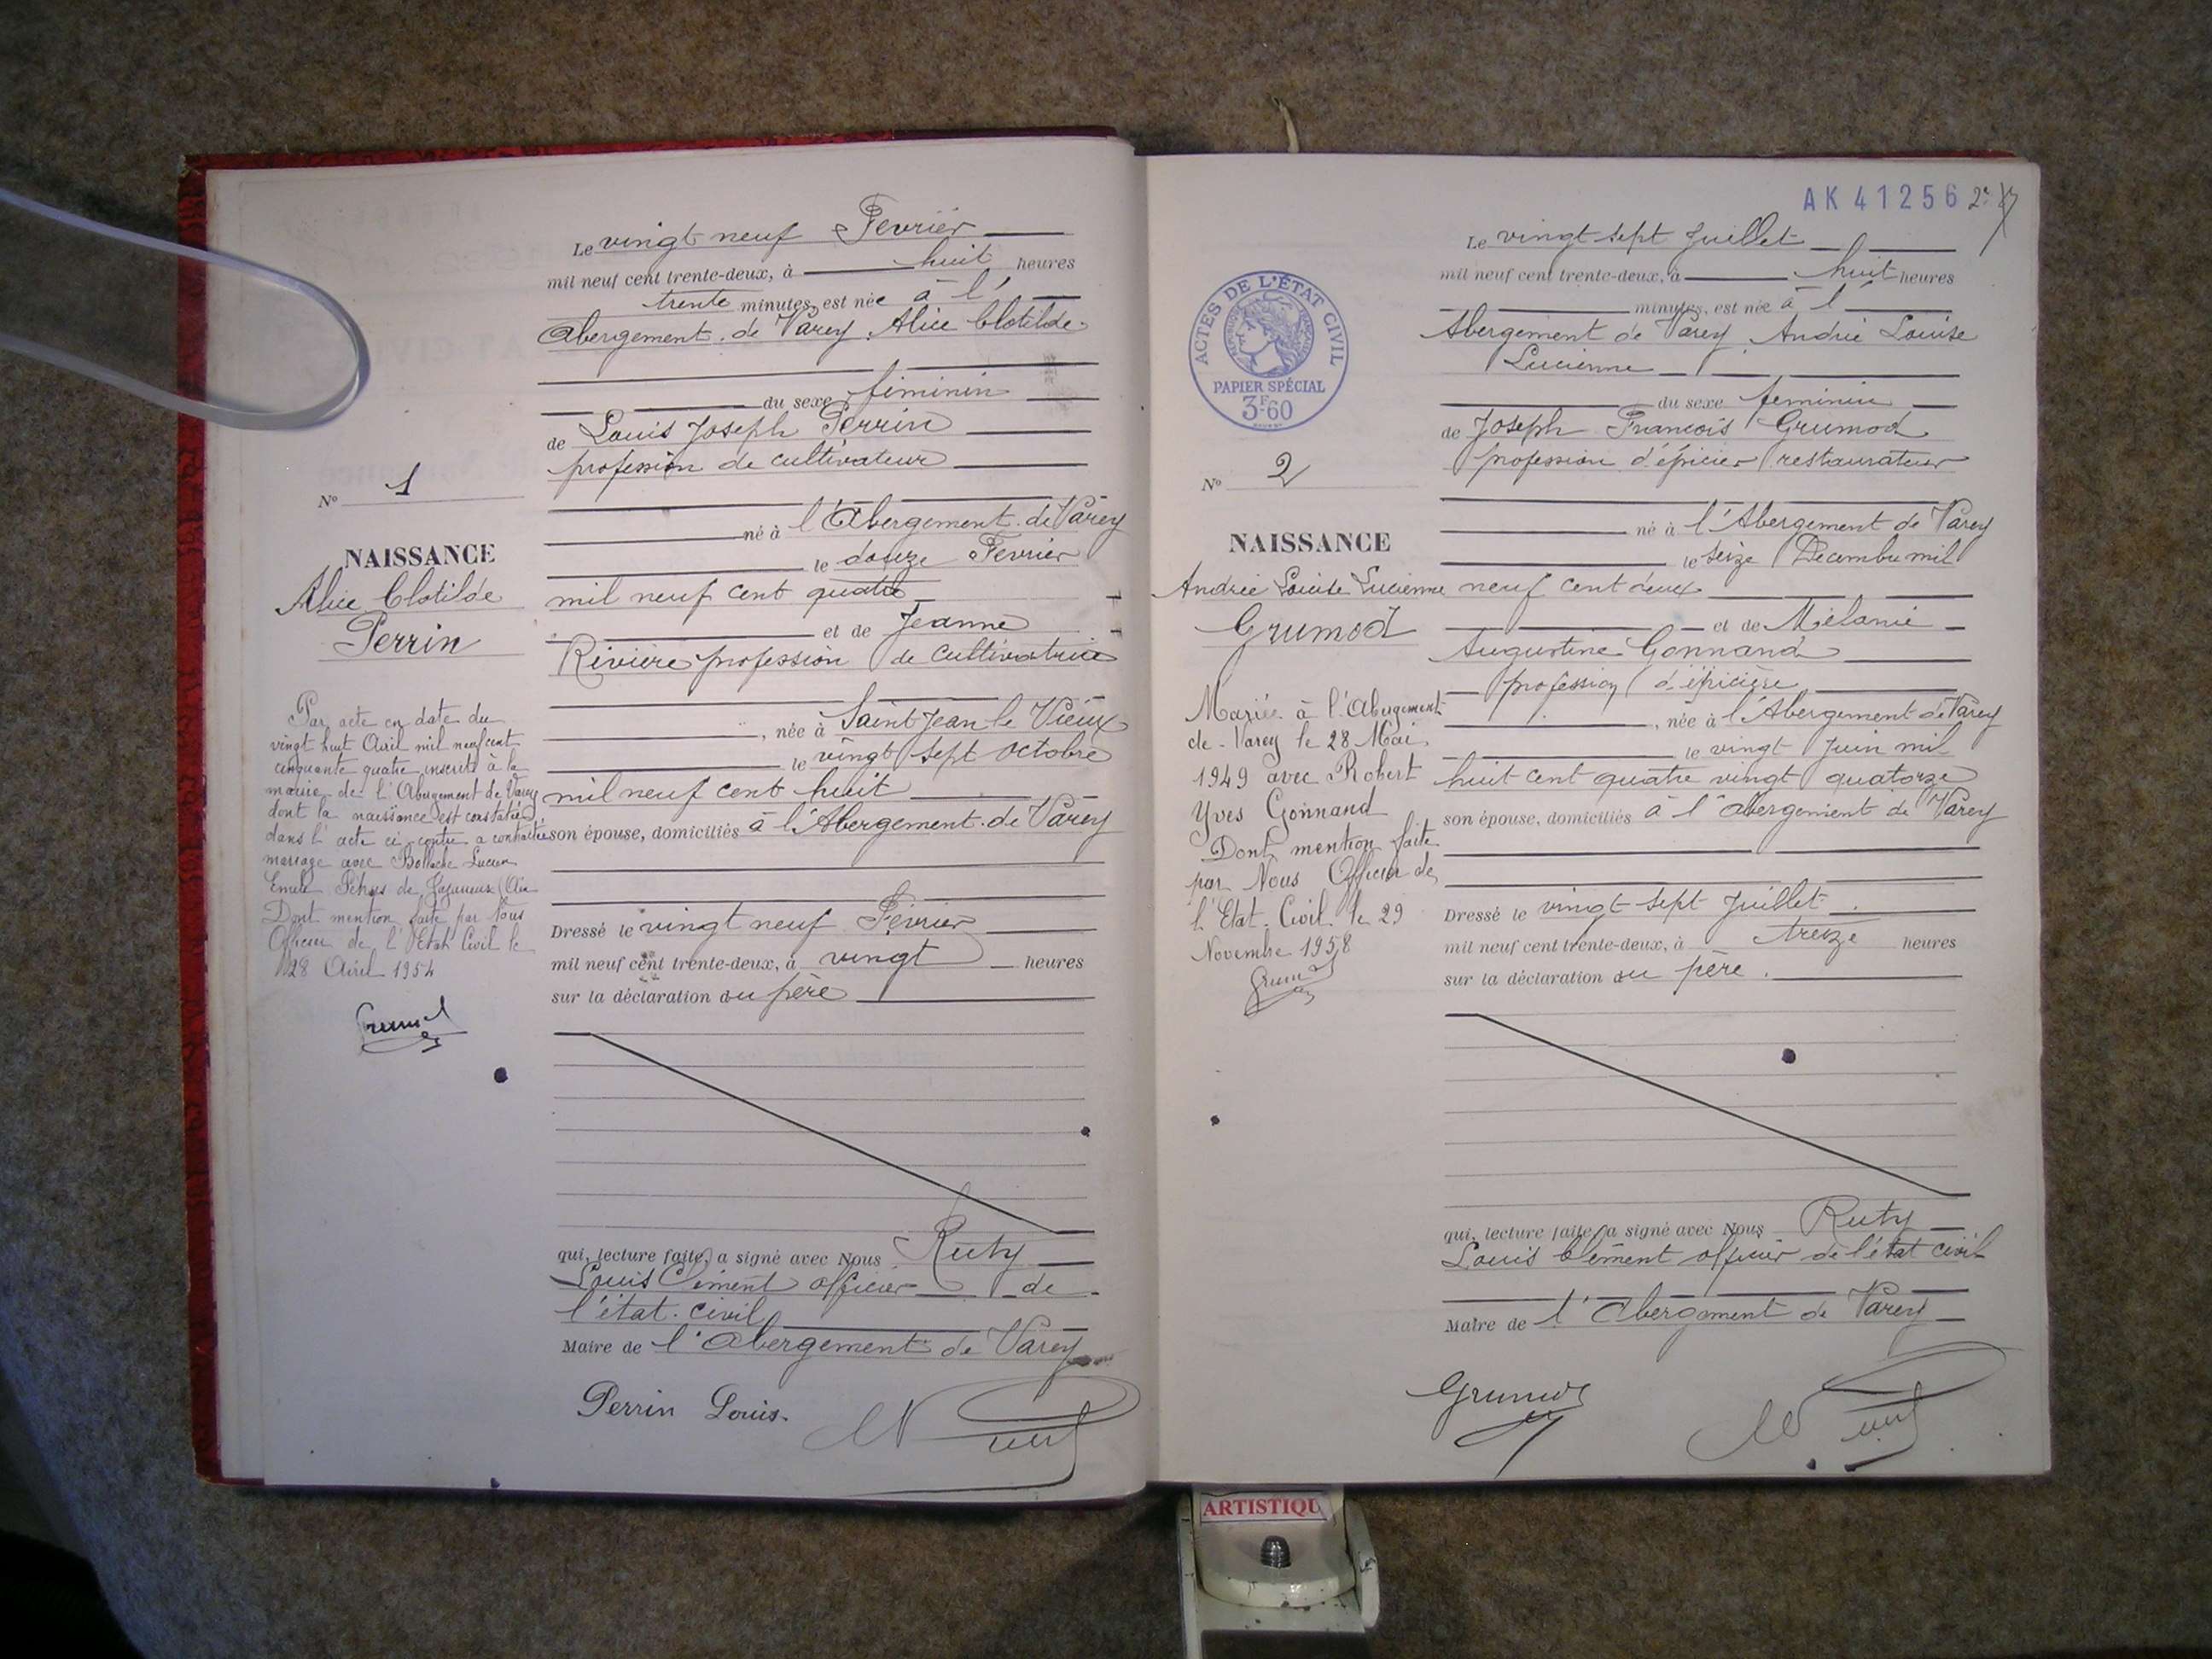 Le vingt neuf Fevrier
mil neuf cent trente-deux, à huit heures
trente minutes, est née à l'
Abergement de Varey Alice Clotilde
du sexe féminin
de Louis Joseph Perrin
profession de cultivateur
né à l'Abergement de Varey
le douze Fevrier
mil neuf cent quatre
et de Jeanne
Rivière profession de cultivatrice
, née à Saint Jean le Vieux
le vingt sept octobre
mil neuf cent huit
son épouse, domiciliés à l'Abergement de Varey
Dressé le vingt neuf Février
mil neuf cent trente-deux, à vingt heures
sur la déclaration du père
qui, lecture faite, a signé avec Nous Ruty
Louis Clément officier de
l'état civil
Maire de l'Abergement de Varey
Perrin Louis.
N° 1
NAISSANCE
Alice Clotilde
Perrin
Par acte en date du
vingt huit Avril mil neuf cent
cinquante quatre inscrite à la
mairie de l'Abergement de Varey
dont la naissance est constatée
dans l'acte ci-contre a contracté
mariage avec Lucien
Emile de (Ain
Dont mention faite par Nous
Officier de l'Etat Civil le
28 Avril 1954
AK 41256
Le vingt sept Juillet
mil neuf cent trente-deux, à huit heures
minutes, est née à l'
Abergement de Varey Andrée Louise
Lucienne
du sexe féminin
de Joseph François Grumod
profession d'épicier restaurateur
né à l'Abergement de Varey
le seize Decembre mil
neuf cent deux
et de Mélanie
Augustine Gonnand
profession d'épicière
, née à l'Abergement de Varey
le vingt Juin mil
huit cent quatre vingt quatorze
son épouse, domiciliés à l'Abergement de Varey
Dressé le vingt sept Juillet
mil neuf cent trente-deux, à treize heures
sur la déclaration du père.
qui, lecture faite, a signé avec Nous Ruty
Louis Clément officier de l'état civil
Maire de l'Abergement de Varey
Grumod
ACTES DE L'ÉTAT CIVIL
RÉPUBLIQUE FRANÇAISE
PAPIER SPÉCIAL
3F60
N° 2
NAISSANCE
Andrée Louise Lucienne
Grumod
Mariée à l'Abergement-
de-Varey le 28 Mai
1949 avec Robert
Yves Gonnand
Dont mention faite
par Nous Officier de
l'Etat Civil le 29
Novembre 1958
ARTISTIQU